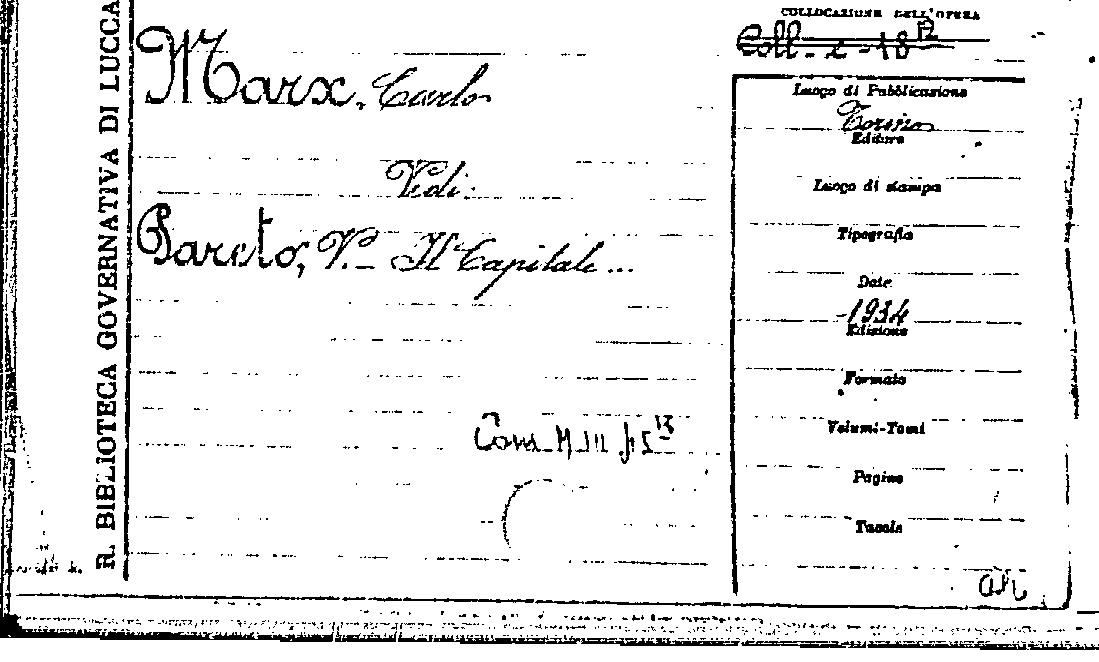 R. BIBLIOTECA GOVERNATIVA DI LUCCA
COLLOCAZIONE DELL'OPERA
Coll. c - 18
Marx, Carlo
Vedi:
Pareto, V. - Il Capitale...
Luogo di Pubblicazione
Torino
Editore
Luogo di stampa
Tipografia
Date
1934
Edizione
Formato
Volumi-Tomi
Pagine
Tavole